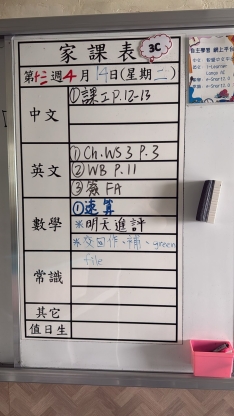 家課表
3C
第十三週4月14日(星期二)
中文
①課工P.12-13
英文
①Ch.WS 3 P.3
②WB P.11
③簽FA
數學
①速算
*明天進評
*交回作、補、green
file
常識
其它
值日生
自主學習 網上平台